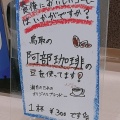 食後においしいコーヒー
はいかがですか?
鳥取の
阿部珈琲の
豆を使ってます!
オリジナルブレンド
1杯 ¥300です